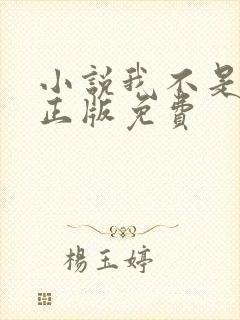 小說我不是
正版免費
楊玉婷